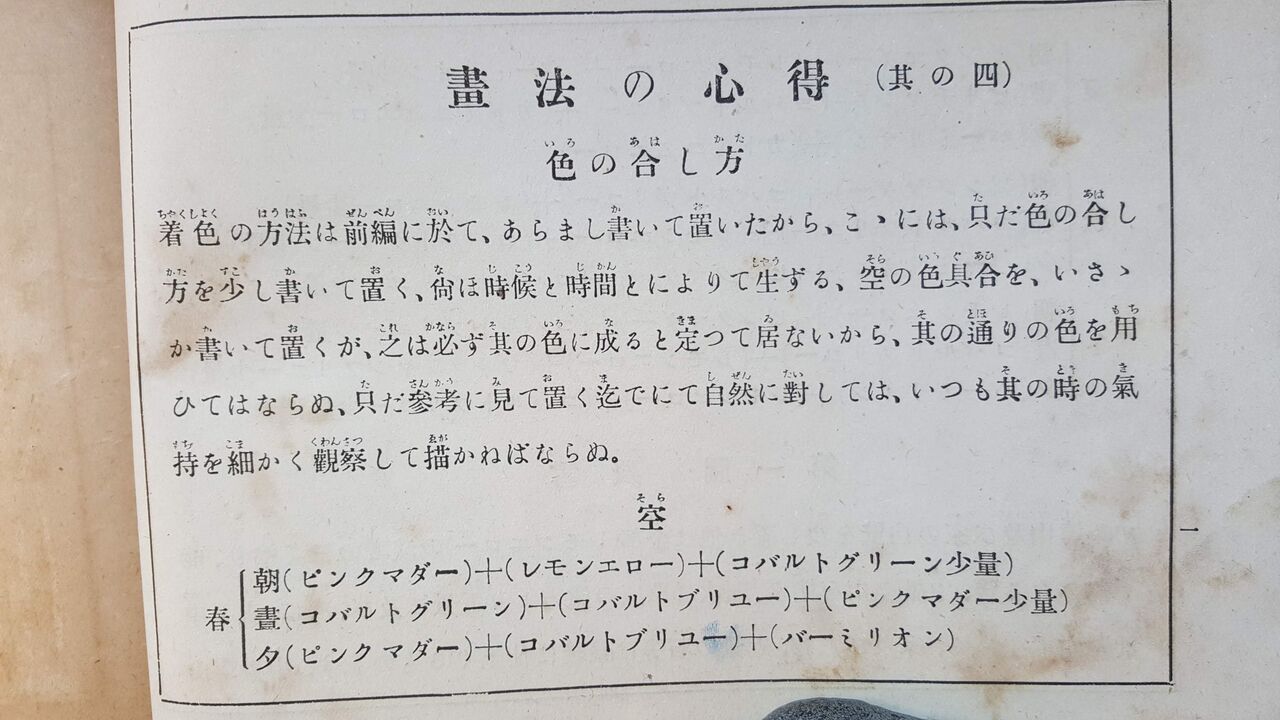 畫法の心得(其の四)
色の合し方
着色の方法は前編に於て、あらまし書いて置いたから、こゝには、只だ色の合し
方を少し書いて置く、尙ほ時候と時間とによりて生ずる、空の色具合を、いさゝ
か書いて置くが、之は必ず其の色に成ると定つて居ないから、其の通りの色を用
ひてはならぬ、只だ參考に見て置く迄でにて自然に對しては、いつも其の時の氣
持を細かく觀察して描かねばならぬ。
空
春
朝(ピンクマダー)+(レモンエロー)+(コバルトグリーン少量)
晝(コバルトグリーン)+(コバルトブリユー)+(ピンクマダー少量)
夕(ピンクマダー)+(コバルトブリユー)+(バーミリオン)
一